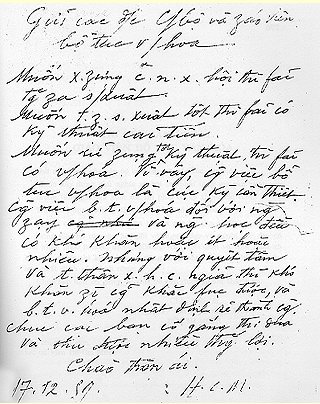 Gửi các đ/c c/bộ và záo viên
bổ túc v/hoá
Muốn x.zựng c.n.x. hội thì fải
tg za s/xuất.
Muốn t.z.s.xuất tốt thì fải có
kỹ thuật cải tiến.
Muốn sử zụng tốt kỹ thuật thì fải
có v/hoá. Vì vậy, cg việc bổ
túc v/hoá là cực kỳ cần thiết.
Cg việc b.t.v/hoá đối với ng
zạy và ng học đều
có khó khăn hoặc ít hoặc
nhiều. Nhưng với quyết tâm
và t.thần x.h.c. nghĩa thì khó
khăn zì cg khắc fục được, và
b.t.v.hoá nhất định sẽ thành cg.
Chúc các bạn cố gắng thi đua
và thu được nhiều thg lợi.
Chào thân ái.
17.12.59. : H.C.M.